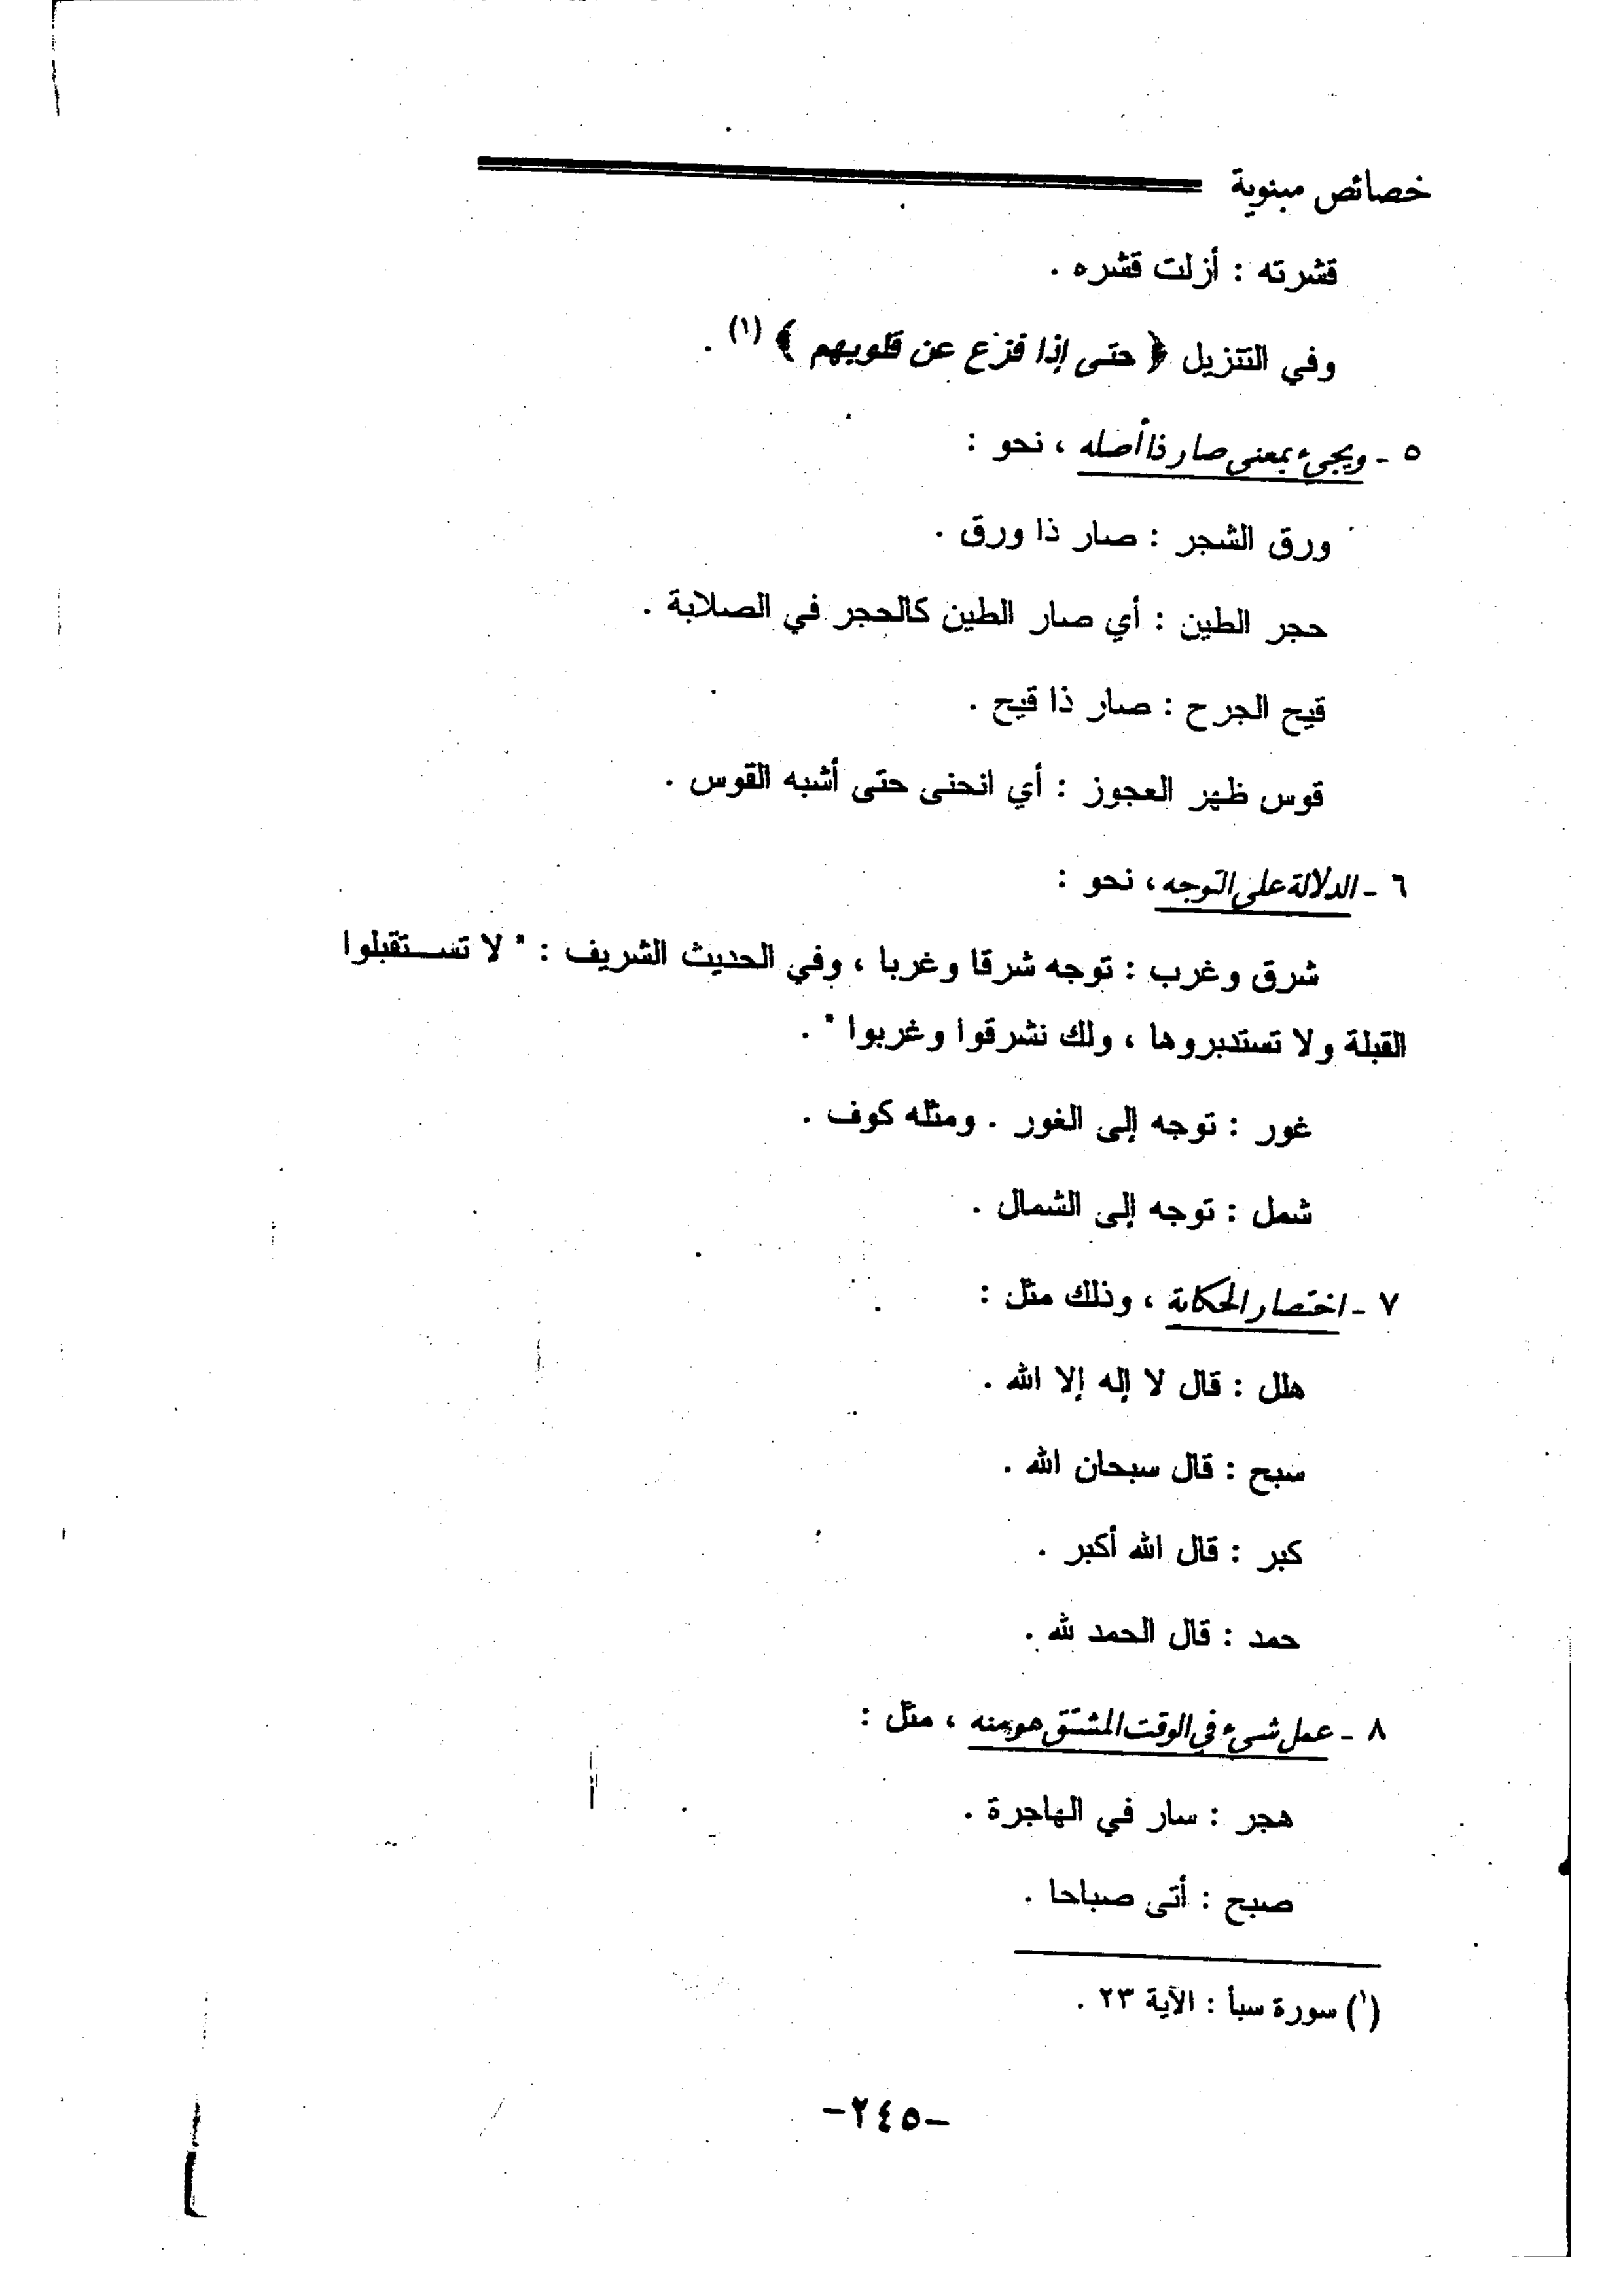 خصائص مبنوية
قشرته : أزلت قشره .
وفي التنزيل ﴿ حتى إذا فزع عن قلوبهم ﴾ (١) .
٥ - ويجيء بمعنى صار ذا أصله ، نحو :
ورق الشجر : صار ذا ورق .
حجر الطين : أي صار الطين كالحجر في الصلابة .
قيح الجرح : صار ذا قيح .
قوس ظهر العجوز : أي انحنى حتى أشبه القوس .
٦ - الدلالة على التوجه ، نحو :
شرق وغرب : توجه شرقا وغربا ، وفي الحديث الشريف : " لا تستقبلوا
القبلة ولا تستدبروها ، ولك نشرقوا وغربوا " .
غور : توجه إلى الغور . ومثله كوف .
شمل : توجه إلى الشمال .
٧ - اختصار الحكاية ، وذلك مثل :
هلل : قال لا إله إلا الله .
سبح : قال سبحان الله .
كبر : قال الله أكبر .
حمد : قال الحمد لله .
٨ - عمل شيء في الوقت المشتق هو منه ، مثل :
هجر : سار في الهاجرة .
صبح : أتى صباحا .
(١) سورة سبأ : الآية ٢٣ .
-٢٤٥-